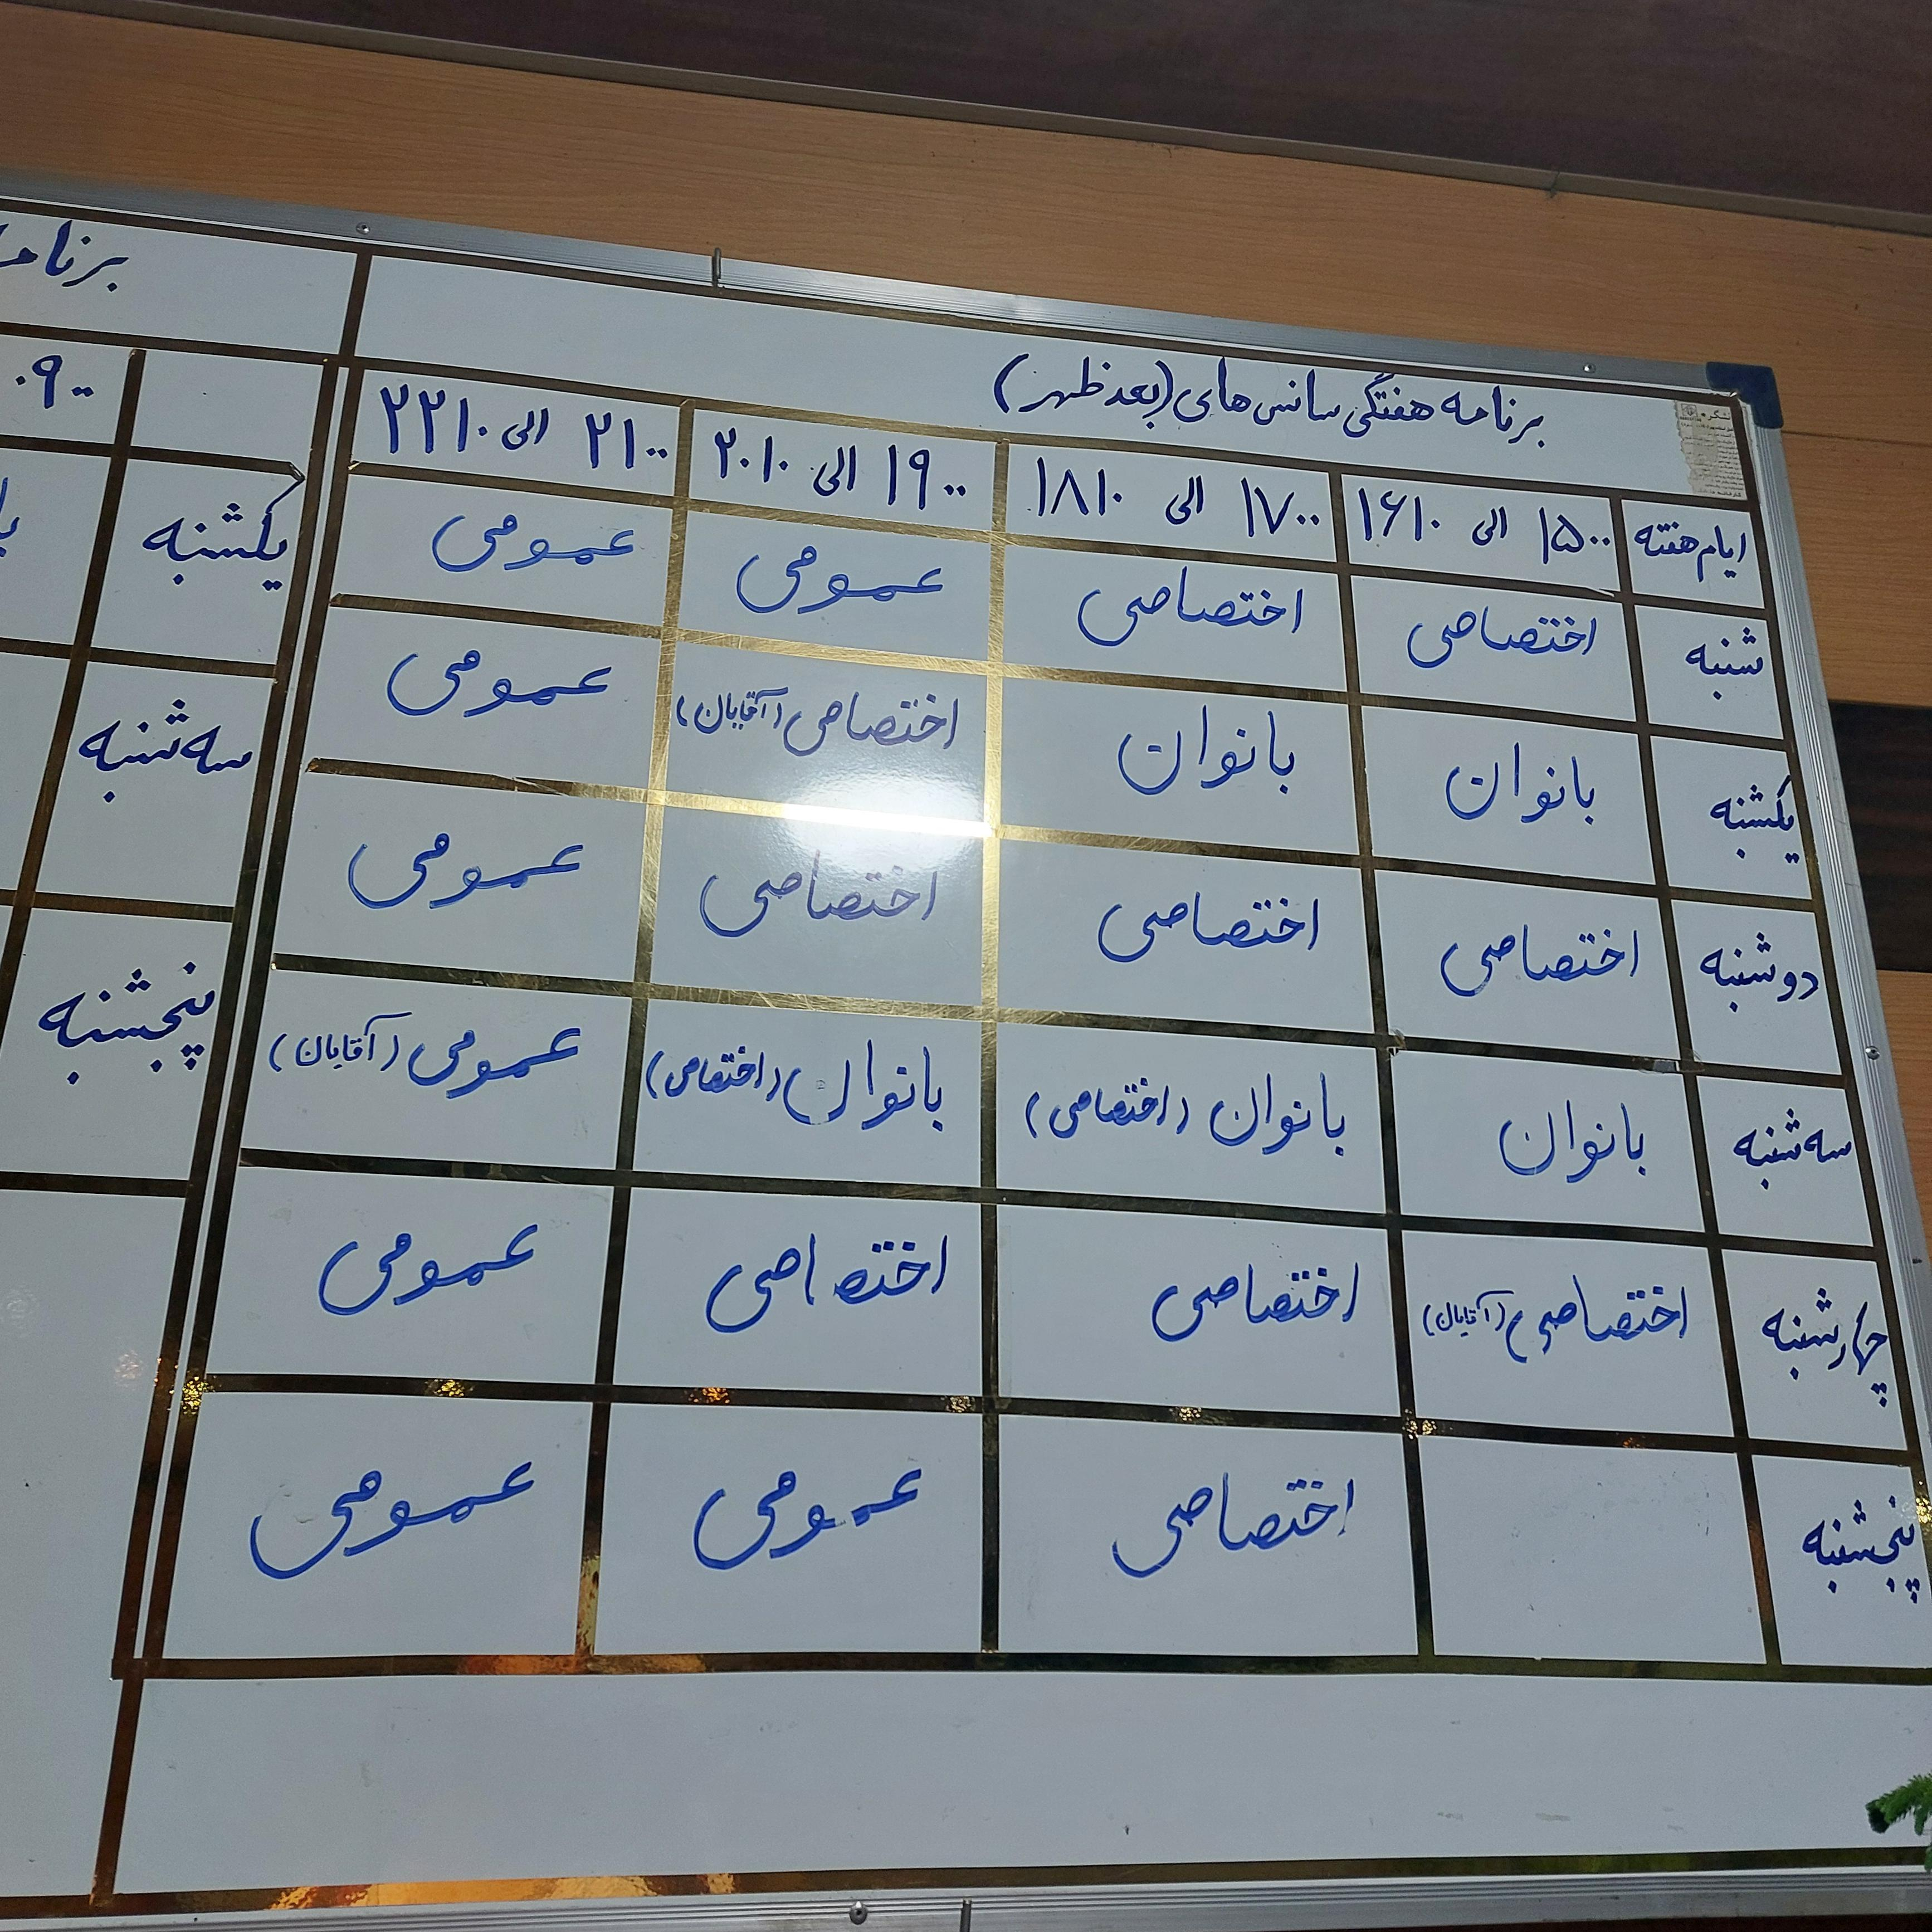 برنامه هفتگی سانس های (بعد ظهر)
ایام هفته ۱۵۰۰ الی ۱۶۱۰ ۱۷۰۰ الی ۱۸۱۰ ۱۹۰۰ الی ۲۰۱۰ ۲۱۰۰ الی ۲۲۱۰
شنبه اختصاصی اختصاصی عمومی عمومی
یکشنبه بانوان بانوان اختصاصی (آقایان) عمومی
دوشنبه اختصاصی اختصاصی اختصاصی عمومی
سه شنبه بانوان بانوان (اختصاصی) بانوان (اختصاصی) عمومی (آقایان)
چهارشنبه اختصاصی (آقایان) اختصاصی اختصاصی عمومی
پنجشنبه اختصاصی عمومی عمومی
۰۹۰۰
یکشنبه
سه شنبه
پنجشنبه